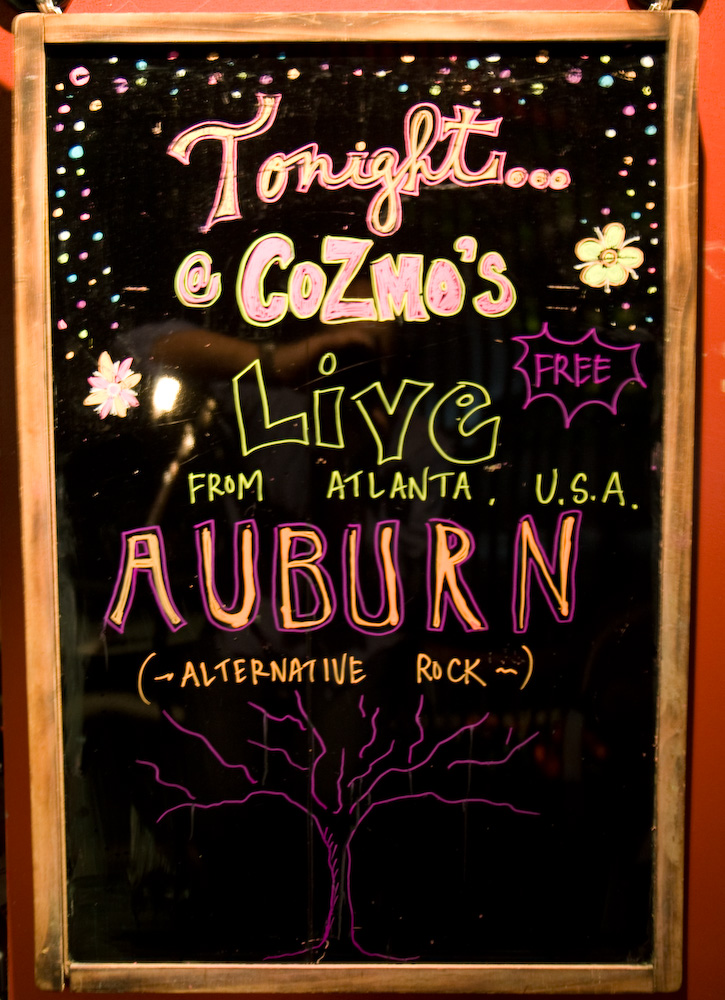 Tonight...
@ COZMO'S
Live
FREE
FROM ATLANTA, U.S.A.
AUBURN
(~ALTERNATIVE ROCK~)